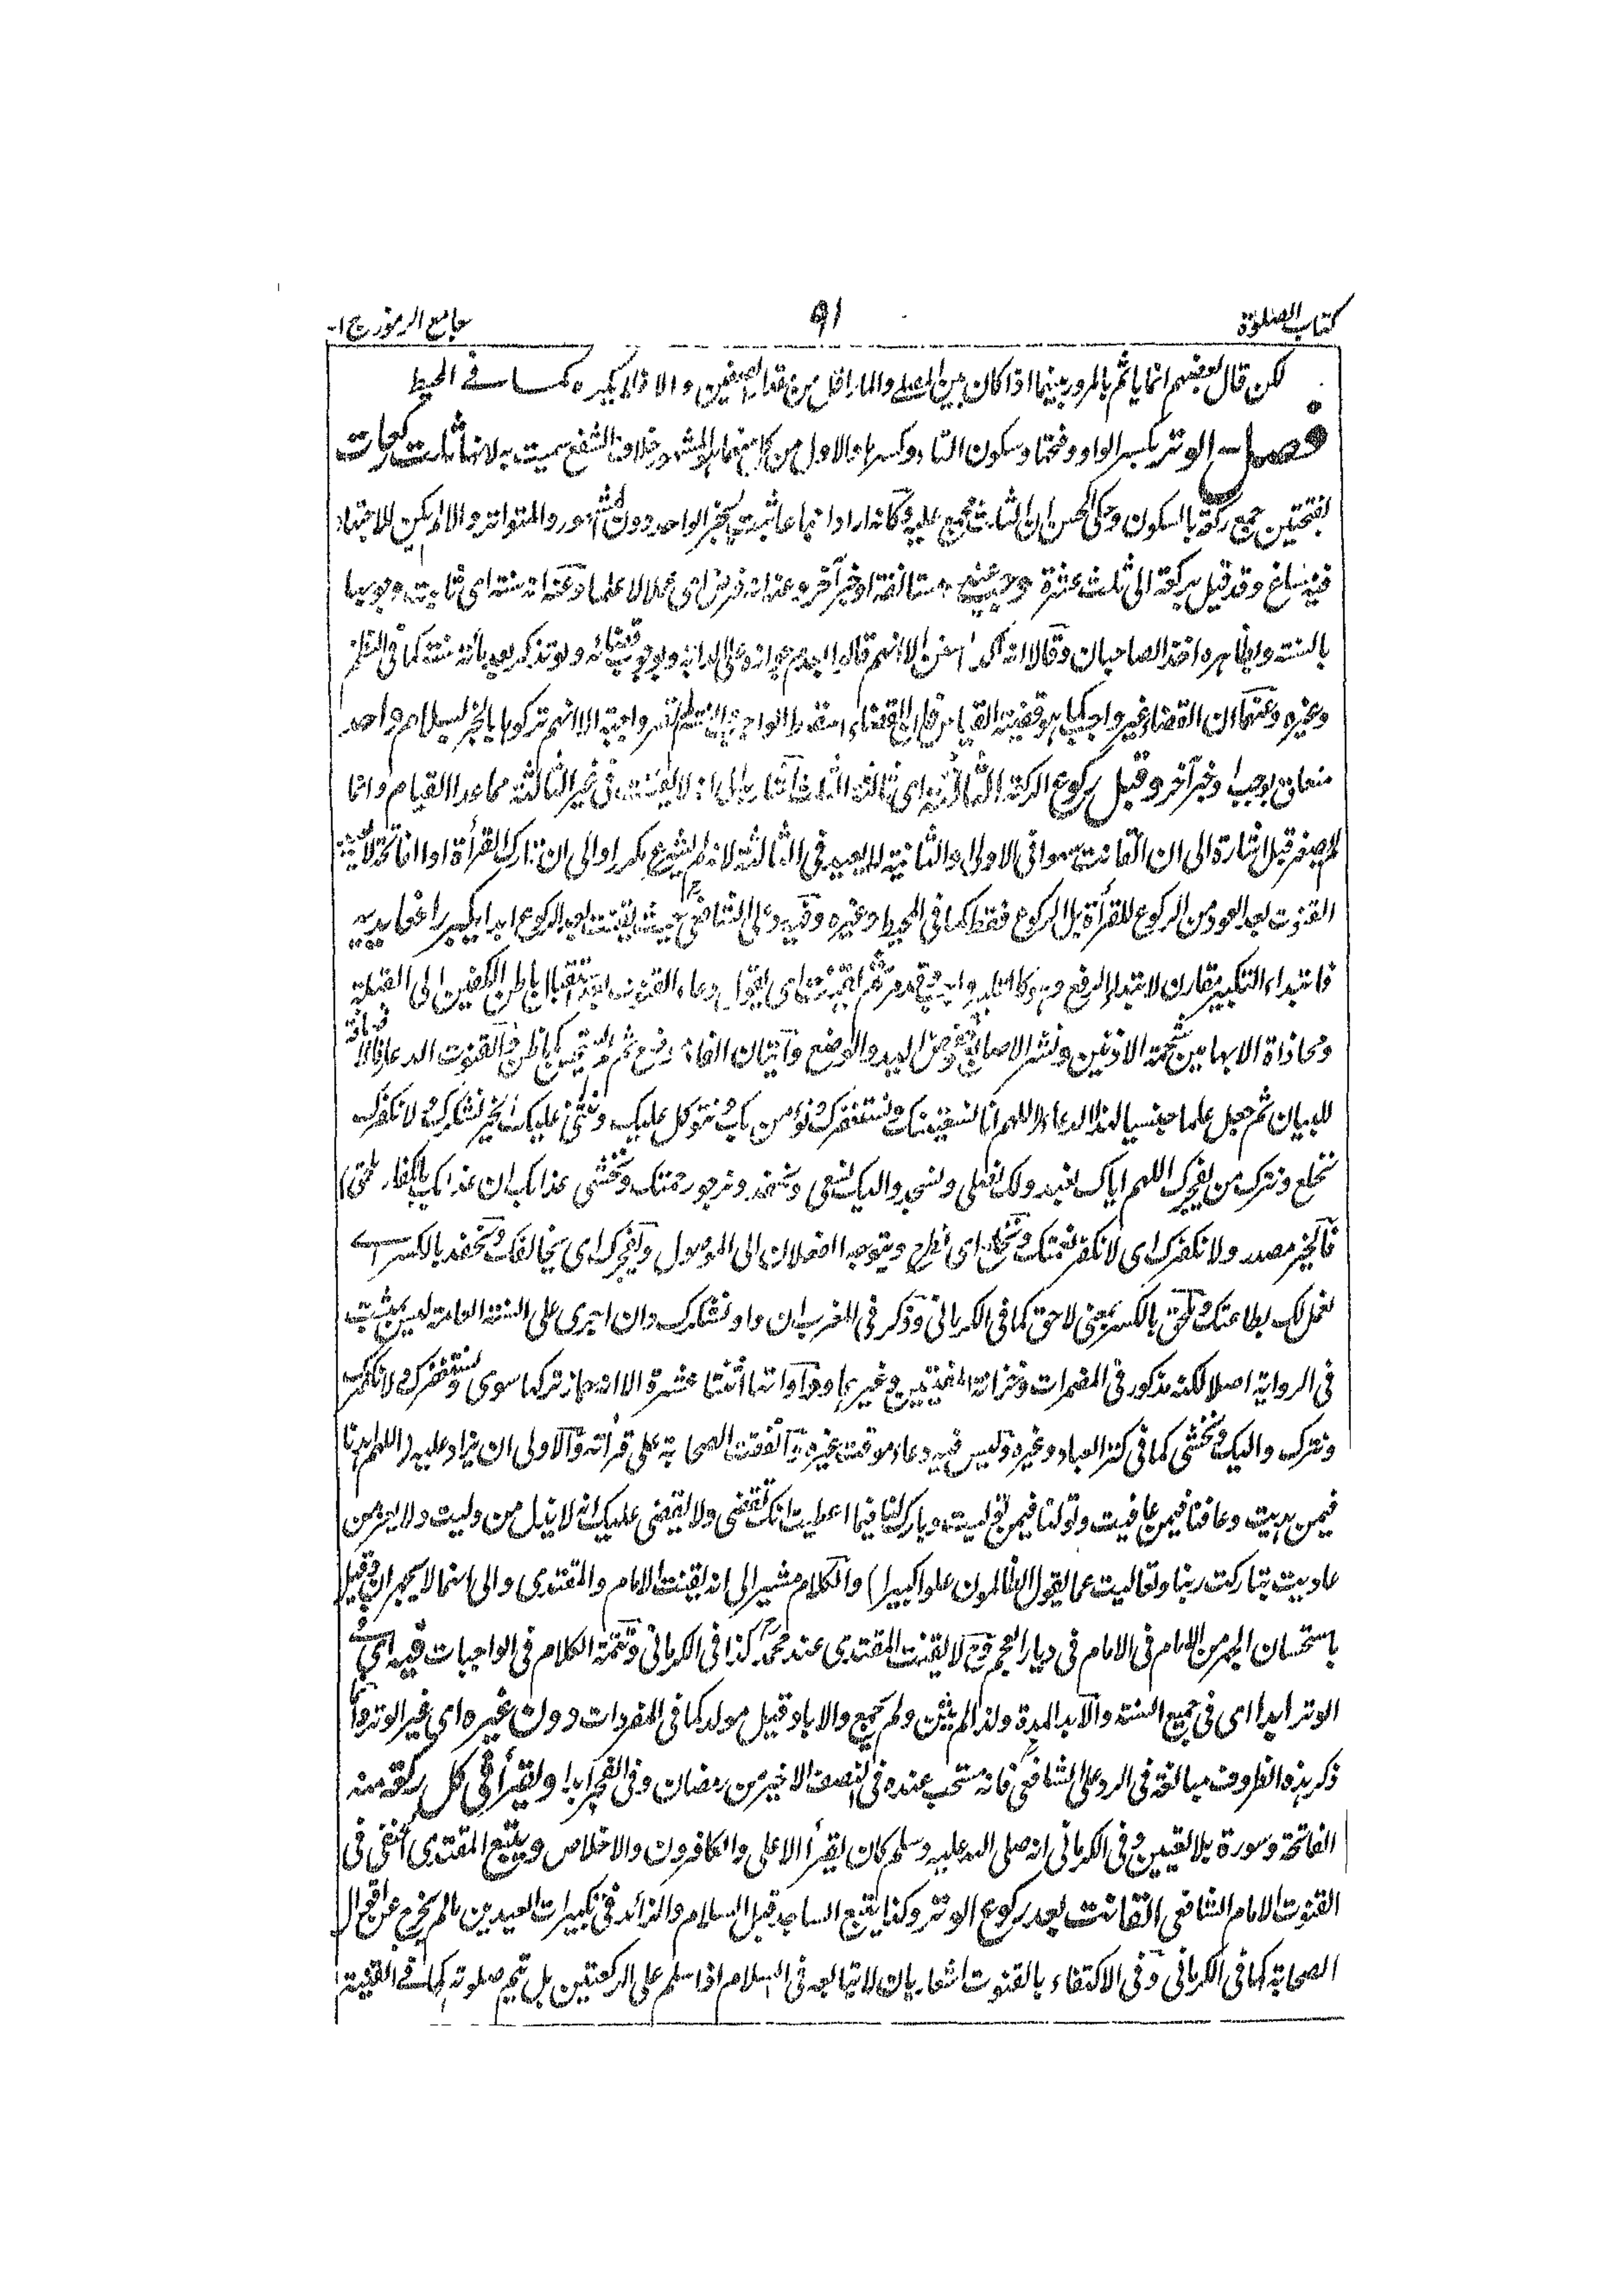 كتاب الصلوة
٩١
جامع الرموز ج ١-
لكن قال بعضهم انما ياثم بالمرور بينهما اذا كان بين المصلي والمار اقل من مقدار الصفين والا فلا يكره كما في المحيط
فصل الوتر بكسر الواو وفتحها وسكون التاء وكسرها والاول من كل منهما هو المشهور خلاف الشفع سميت به لانها ثلث ركعات
بفتحتين جمع ركعة بالسكون وحكى الحسن ان الثلث مجمع عليه وكانه اراد انها ثبت بخبر الواحد دون المشهور والمتواتر والا لم يكن للاجتهاد
فيه مساغ وقد قيل بركعة الى ثلث عشرة وجب عنده مستانفة او خبر آخر وعنه انه فرض اى عملا لا علما وعنه انه سنة اى ثابت وجوبها
بالسنة وبظاهره اخذ الصاحبان وقالا انه آكد السنن الا انهم قالوا بعدم جوازه على الدابة وبوجوب قضائه ولو تذكر بعد بانه سنة كما فى النظم
وغيره وعنهما ان القضاء غير واجب كما هو قضية القياس الا انهم تركوها بالخبر بسلام واحد
متعلق بوجب او خبر آخر وقبل ركوع الركعة الثالثة اى ثالثة الثلث اشارة الى انه لا يقنت فى غير الثالثة مما عدا القيام وانما
لم يصغر قبل اشارة الى ان القانت سهوا فى الاولى والثانية لم يعد فى الثالثة لانه لم يشرع مكررا والى ان تارك القرأة او الفاتحة
القنوت بعد العود من الركوع للقرأة بل الركوع فقط كما فى المحيط وغيره وفيه رد على الشافعى حيث يقنت بعد الركوع ابدا يكبر رافعا يديه
فابتداء التكبير مقارن لابتداء الرفع ثم يقنت اى يقول دعاء القنوت باطن الكفين الى القبلة
ومحاذاة الابهامين شحمة الاذنين ونشر الاصابع والوضع والقنوت الدعاء فالاضافة
للبيان ثم جعل علما جنسيا لهذا الدعاء (اللهم انا نستعينك ونستغفرك ونؤمن بك ونتوكل عليك ونثنى عليك الخير نشكرك ولا نكفرك
نخلع ونترك من يفجرك اللهم اياك نعبد ولك نصلى ونسجد واليك نسعى ونحفد ونرجو رحمتك ونخشى عذابك ان عذابك بالكفار ملحق)
فالخير مصدر ولا نكفرك اى لا نكفر نعمتك ونخلع اى نطرح ويتوجه الفعلان الى الموصول ويفجرك اى يخالفك ونحفد بالكسر اى
نعمل لك بطاعتك وملحق بالكسر بمعنى لاحق كما فى الكرمانى وذكر فى المغرب ان واو نشكرك وان اجرى على السنة العامة ليس بمثبت
فى الرواية اصلا لكنه مذكور فى المضمرات وخزانة المفتيين وغيرها وواواتها اثنتا عشرة الا انه جاز تركها سوى ونستغفرك ولا نكفرك
ونترك واليك ونخشى كما فى كنز العباد وغيره وليس فيه دعاء موقت غيره اتفقت الصحابة على قرأته والاولى ان يزاد عليه (اللهم اهدنا
فيمن هديت وعافنا فيمن عافيت وتولنا فيمن توليت وبارك لنا فيما اعطيت انك تقضى ولا يقضى عليك انه لا يذل من واليت ولا يعز من
عاديت تباركت ربنا وتعاليت عما يقول الظالمون علوا كبيرا) والكلام مشير الى انه يقنت الامام والمقتدى والى انهما لا يجهران وقيل
باستحسان الجهر من الامام فى ديار العجم لا يقنت المقتدى عند محمد كذا فى الكرمانى وتتمة الكلام فى الواجبات فيه اى فى
الوتر ابدا اى فى جميع السنة والابد المدة ولذا لم يثن ولم يجمع والاباد قيل مولد كما فى المفردات دون غيره اى غير الوتر وانما
ذكر هذه الظروف مبالغة فى الرد على الشافعى فانه مستحب عنده فى النصف الاخير من رمضان وفى الفجر ابدا ويقرأ فى كل ركعة منه
الفاتحة وسورة بلا تعيين وفى الكرمانى انه صلى الله عليه وسلم كان يقرأ الاعلى والكافرون والاخلاص ويتبع المقتدى الحنفى فى
القنوت الامام الشافعى القانت بعد ركوع الوتر وكذا يتبع الساجد قبل السلام والزائد فى تكبيرات العيدين مالم يخرج عن اقوال
الصحابة كما فى الكرمانى وفى الاكتفاء بالقنوت اشعار بان لا يتابعه فى السلام اذا سلم على الركعتين بل يتم صلوته كما فى القنية